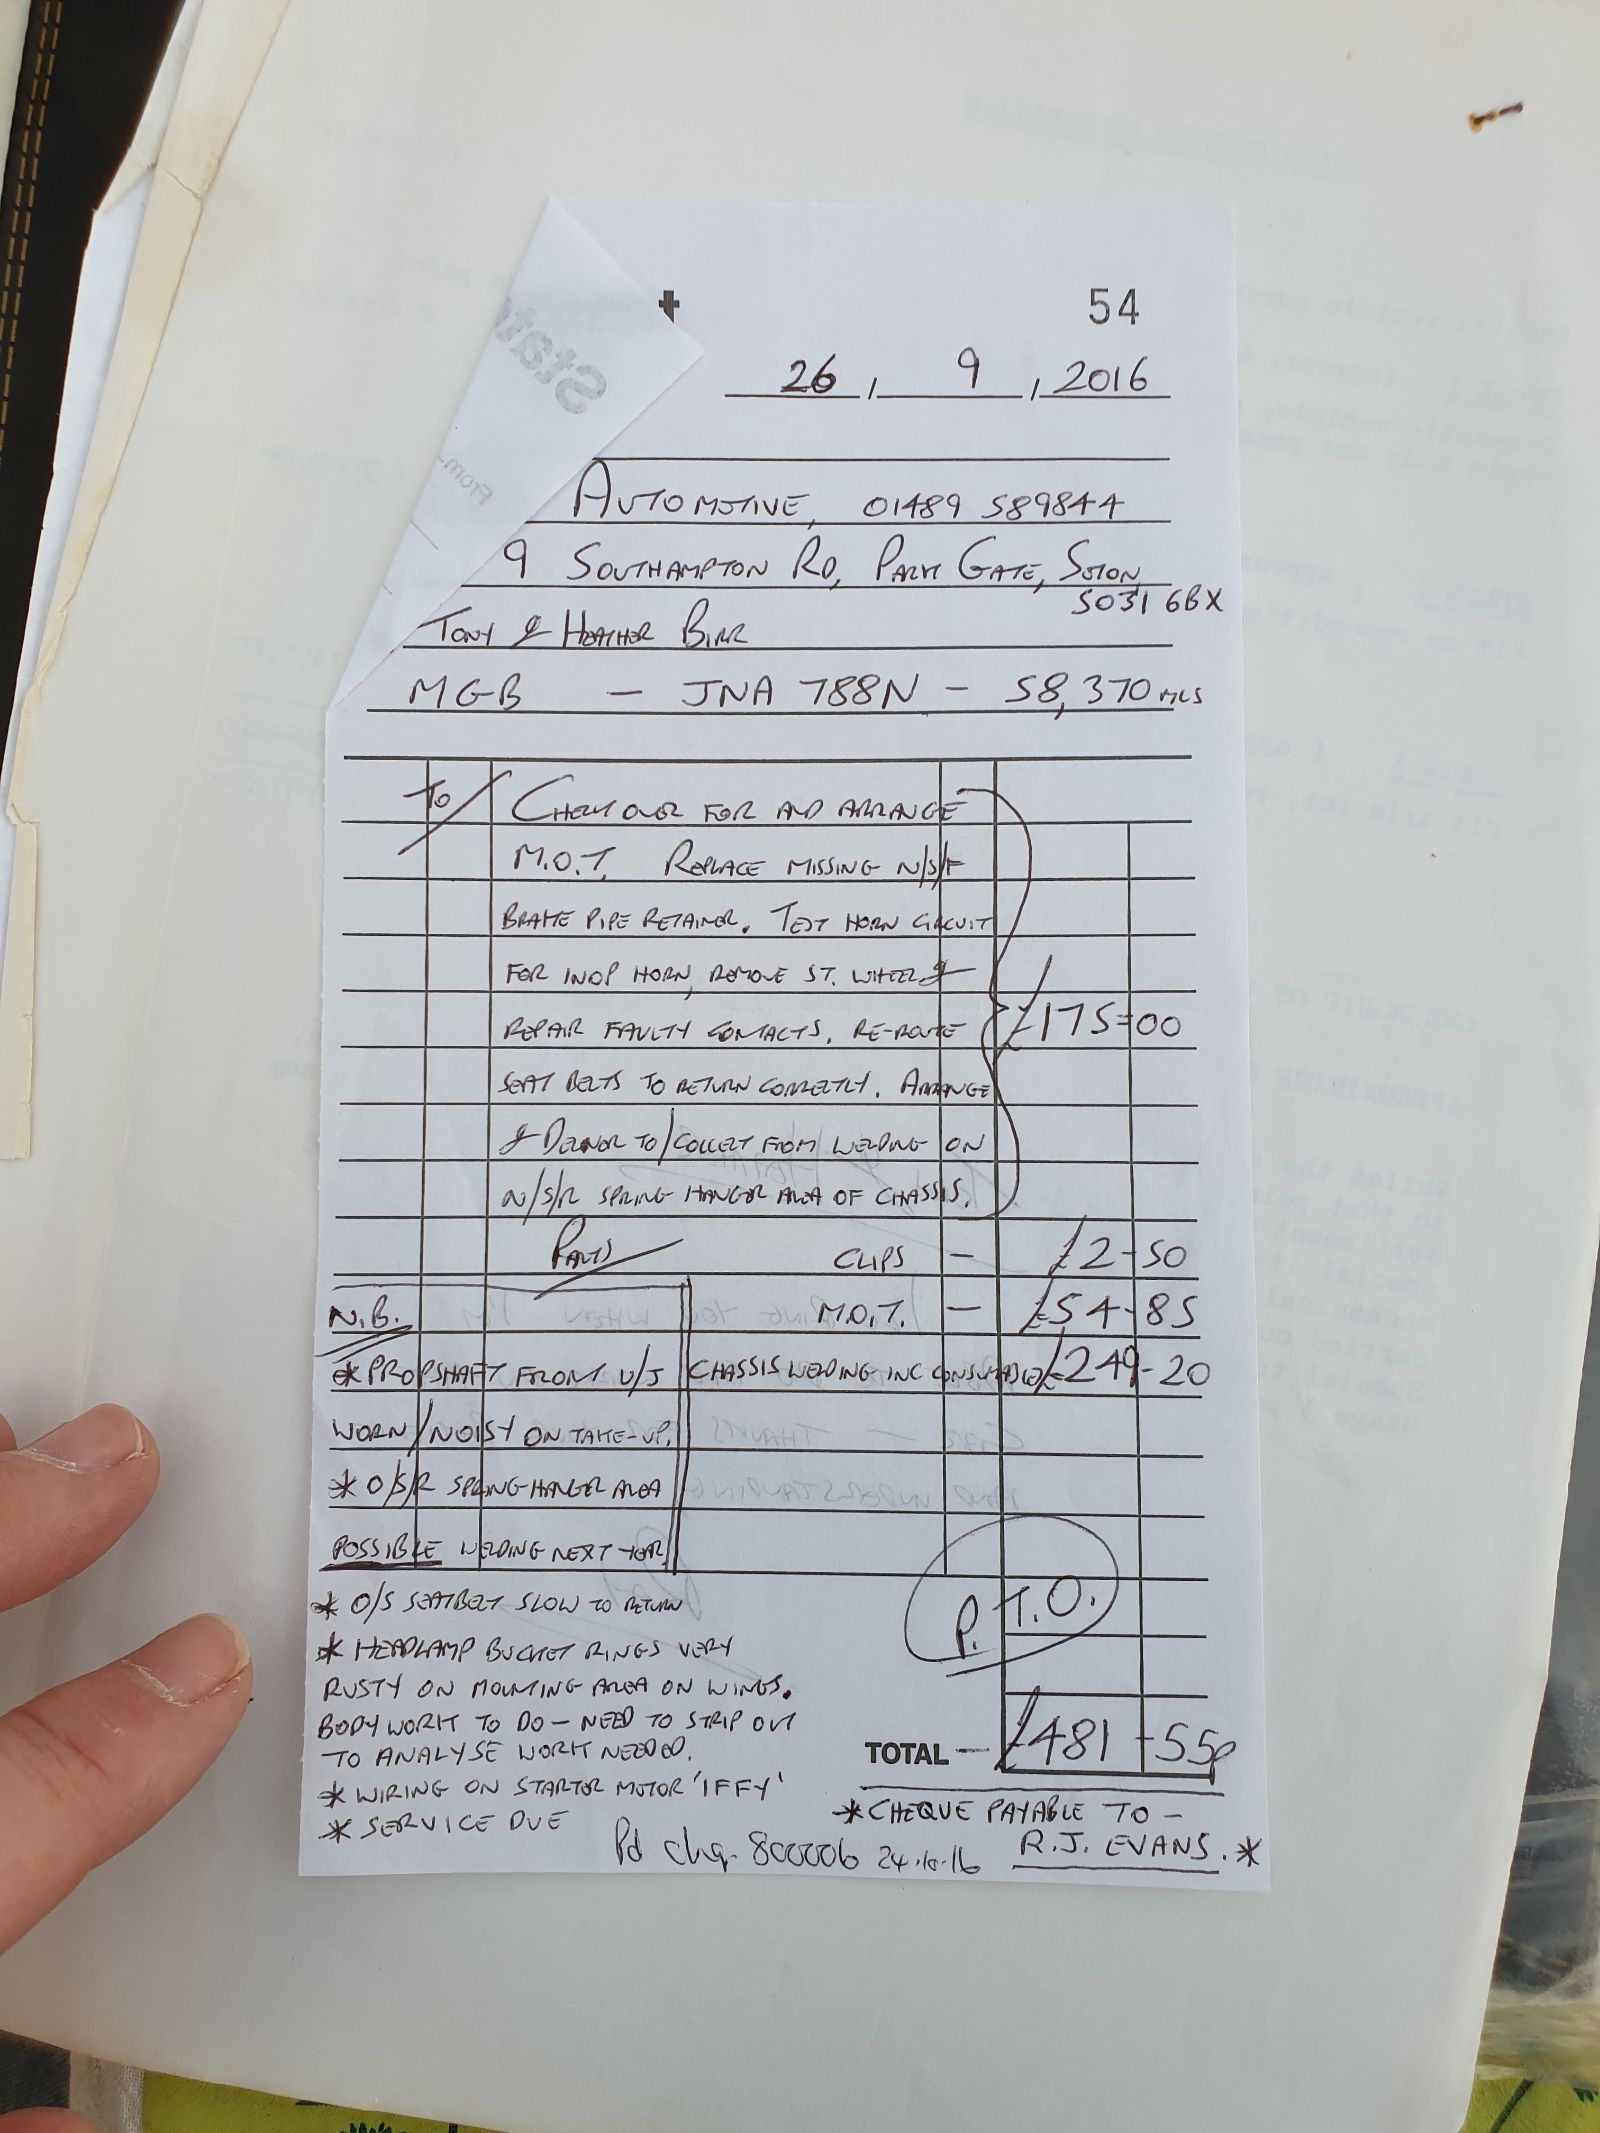 54
26 / 9 / 2016
State
From
AUTOMOTIVE, 01489 589844
9 SOUTHAMPTON RD, PARK GATE, SOTON,
SO31 6BX
TONY & HEATHER BIRR
MGB - JNA 788N - 58,370 MLS
TO/ CHECK OVER FOR AND ARRANGE
M.O.T. REPLACE MISSING N/S/F
BRAKE PIPE RETAINER. TEST HORN CIRCUIT
FOR INOP HORN, REMOVE ST. WHEEL &
REPAIR FAULTY CONTACTS. RE-ROUTE £175=00
SEAT BELTS TO RETURN CORRECTLY. ARRANGE
& DELIVER TO/COLLECT FROM WELDING ON
N/S/R SPRING HANGER AREA OF CHASSIS.
PARTS CLIPS - £2-50
N.B. M.O.T. - £54-85
* PROPSHAFT FRONT U/J CHASSIS WELDING INC CONSUMABLES £249-20
WORN/NOISY ON TAKE-UP.
* O/S/R SPRING HANGER AREA
POSSIBLE WELDING NEXT YEAR.
* O/S SEATBELT SLOW TO RETURN
P.T.O.
* HEADLAMP BUCKET RINGS VERY
RUSTY ON MOUNTING AREA ON WINGS.
BODYWORK TO DO - NEED TO STRIP OUT
TO ANALYSE WORK NEEDED.
TOTAL - £481-55p
* WIRING ON STARTER MOTOR 'IFFY'
* SERVICE DUE
* CHEQUE PAYABLE TO -
R.J. EVANS. *
Pd chq. 800006 24.10.16